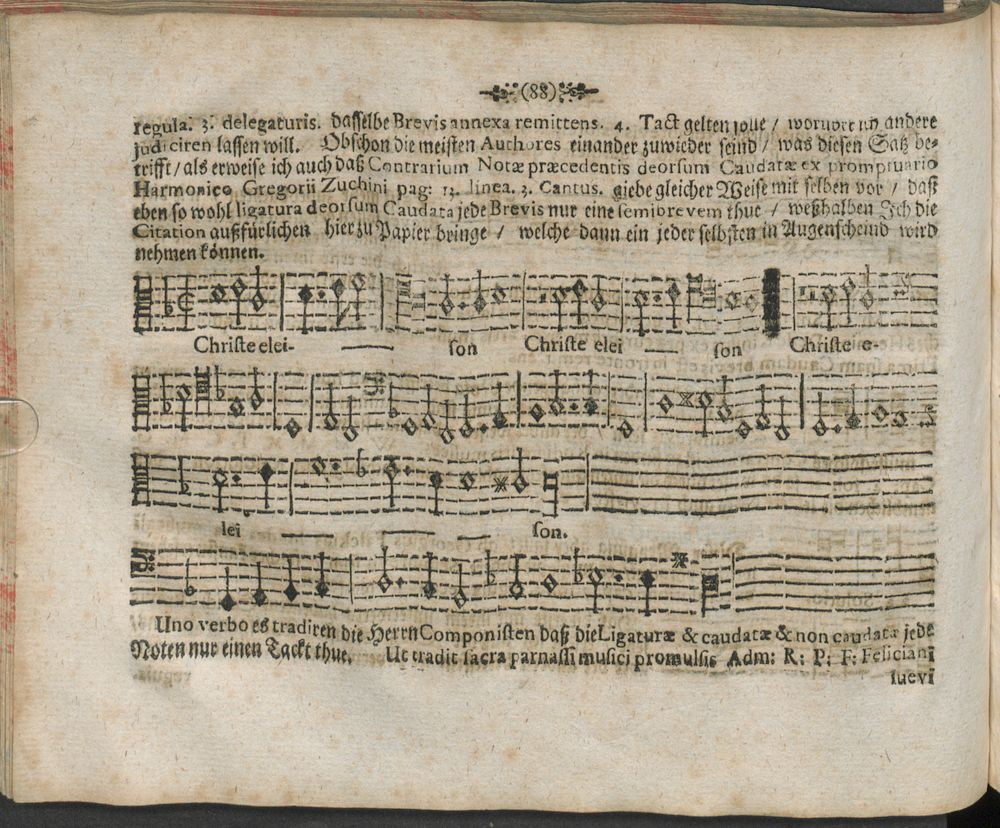 (88)
regula. 3. delegaturis. dasselbe Brevis annexa remittens. 4. Tact gelten solle / worüber ich andere
judiciren lassen will. Obschon die meisten Authores einander zuwieder seind / was diesen Satz be-
trifft / als erweise ich auch daß Contrarium Notæ præcedentis deorsum Caudatæ ex promptuario
Harmonico Gregorii Zuchini pag: 12. linea. 3. Cantus. giebe gleicher Weise mit selben vor / daß
eben so wohl ligatura deorsum Caudata jede Brevis nur eine semibrevem thut / weßhalben Ich die
Citation außfürlichen hier zu Papier bringe / welche dann ein jeder selbsten in Augenscheind wird
nehmen können.
Christe elei- son Christe elei son Christe e-
lei son.
Uno verbo es tradiren die Herrn Componisten daß die Ligaturæ & caudatæ & non caudatæ jede
Noten nur einen Tackt thue. Ut tradit sacra parnassi musici promulsis Adm: R: P: F: Feliciani
suevi